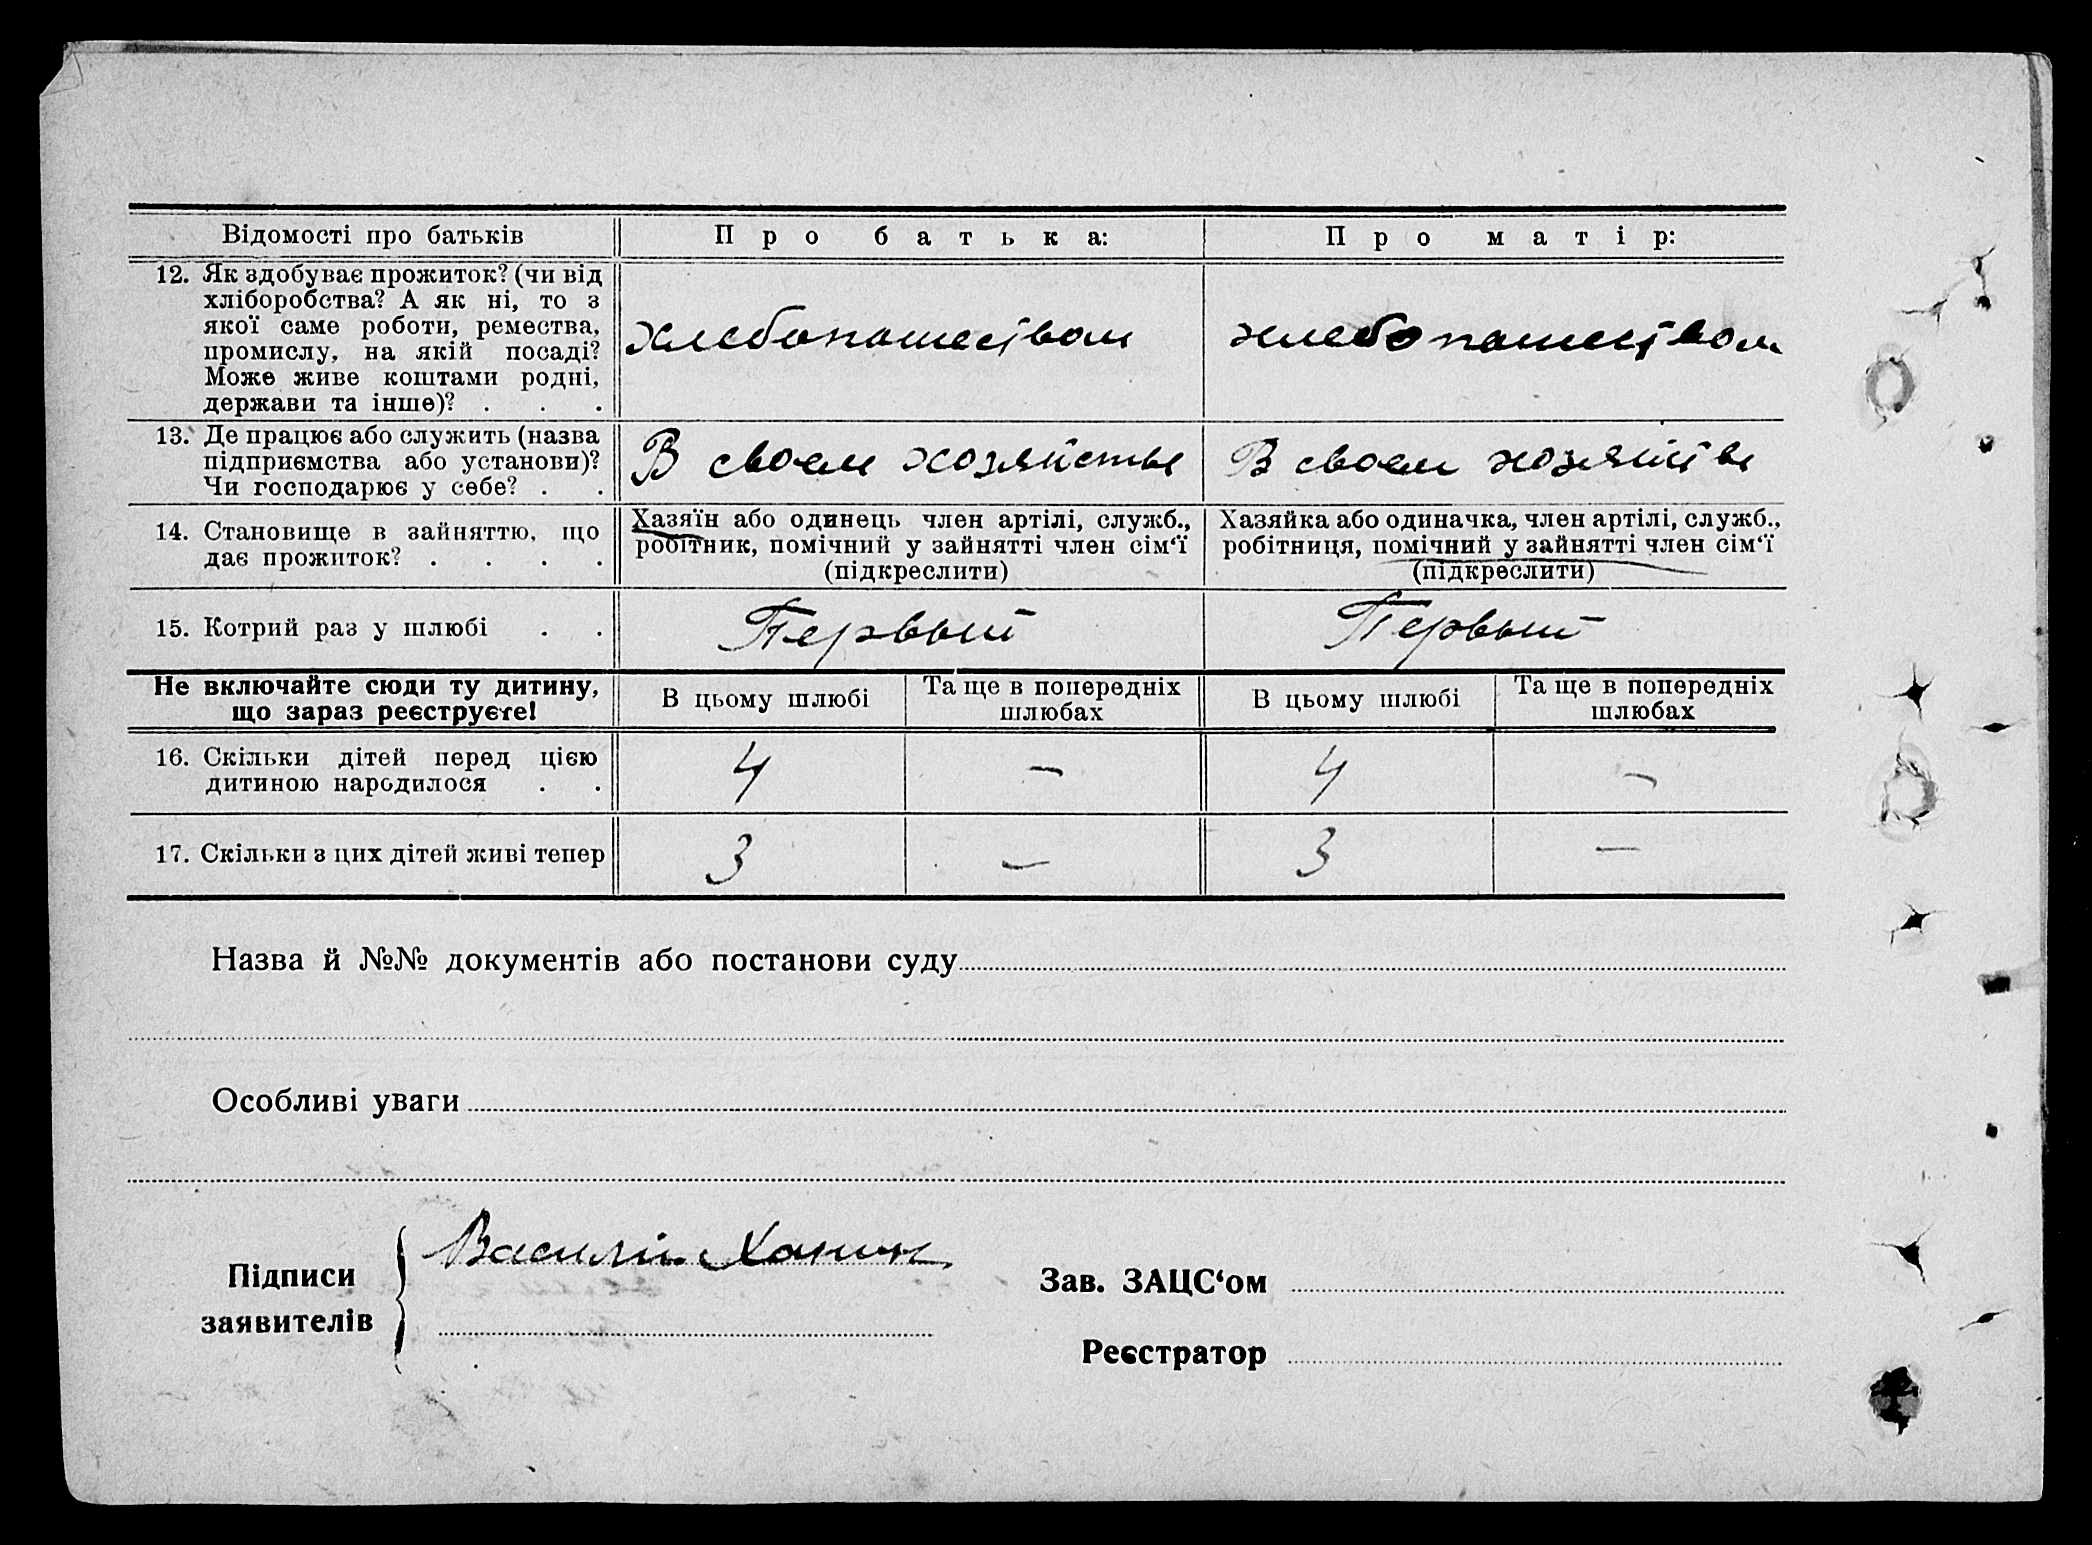 Відомості про батьків Про батька: Про матір:
12. Як здобуває прожиток? (чи від
хліборобства? А як ні, то з
якої саме роботи, ремества,
промислу, на якій посаді?
Може живе коштами родні,
держави та інше)? . . .
хлебопашеством хлебопашеством
13. Де працює або служить (назва
підприємства або установи)?
Чи господарює у себе? . .
В своем хозяйстве В своем хозяйстве
14. Становище в зайняттю, що
дає прожиток? . . . .
Хазяїн або одинець член артілі, служб.,
робітник, помічний у зайнятті член сім‘ї
(підкреслити)
Хазяйка або одиначка, член артілі, служб.,
робітниця, помічний у зайнятті член сім‘ї
(підкреслити)
15. Котрий раз у шлюбі . . Первый Первый
Не включайте сюди ту дитину,
що зараз реєструєте!
В цьому шлюбі
Та ще в попередніх
шлюбах
В цьому шлюбі
Та ще в попередніх
шлюбах
16. Скільки дітей перед цією
дитиною народилося . .
4 — 4 —
17. Скільки з цих дітей живі тепер 3 — 3 —
Назва й №№ документів або постанови суду
Особливі уваги
Підписи
заявителів
Василий Ханин
Зав. ЗАЦС‘ом
Реєстратор